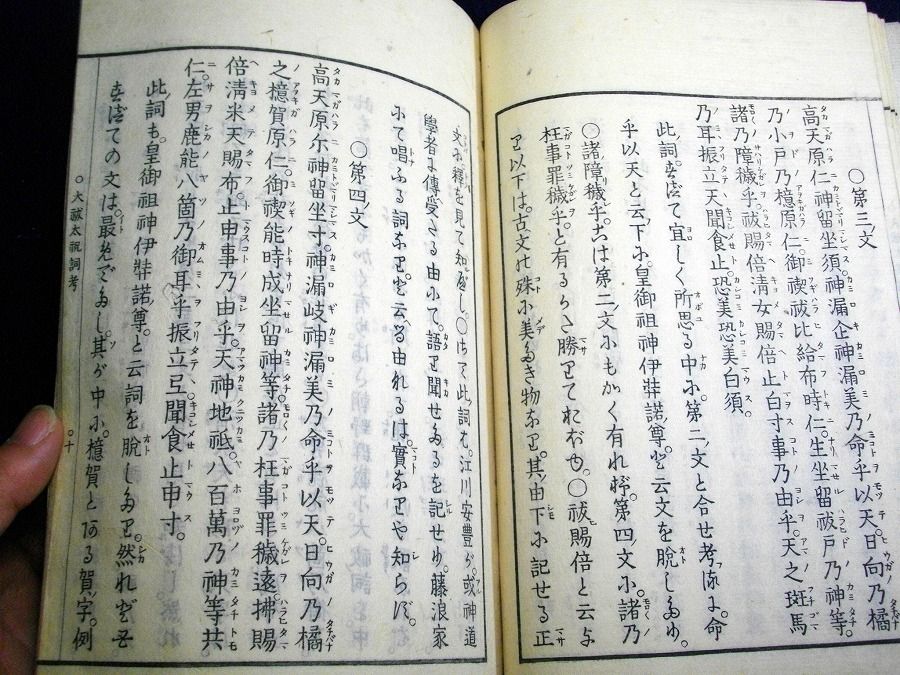 ○第三ノ文
高天原仁神留坐須。神漏企神漏美乃命乎以天。日向乃橘
乃小戸乃檍原仁。御禊祓比給布時仁生坐留祓戸乃神等。
諸乃障穢乎。祓賜倍清女賜倍止白寸事乃由乎。天之斑馬
乃耳振立天聞食止。恐美恐美白須。
此詞。すべて宜しく所思る中に。第二ノ文と合せ考ふるに。命
乎以天と云下に。皇御祖神伊弉諾尊と云文を脱しためり。
○諸障穢乎。こは第二ノ文にもかく有れど。第四ノ文に。諸乃
枉事罪穢乎。と有るかた勝りておぼゆ。○祓賜倍と云よ
り以下は。古文の殊に美たき物なり。其由下に記せる正
文の釋を見て知べし。○はて此ノ詞は。江川安豊が。或神道
學者に傳受たる由にて。語り聞せたるを記せり。藤浪家
にて唱ふる詞なりと云へる由れるは。實なりや知らず。
○第四ノ文
高天原尓神留坐寸。神漏岐神漏美乃命乎以天。日向乃橘
之檍賀原仁。御禊能時成坐留神等。諸乃枉事罪穢遠拂賜
倍清米天賜布止申事乃由乎。天神地祇。八百萬乃神等共
仁。左男鹿能八箇乃御耳乎振立弖聞食止申寸。
此詞も。皇御祖神伊弉諾尊。と云詞を脱したり。然れど
すべての文は最めでたし。其が中に。檍賀とある賀ノ字。例
○大祓太祝詞考
○十